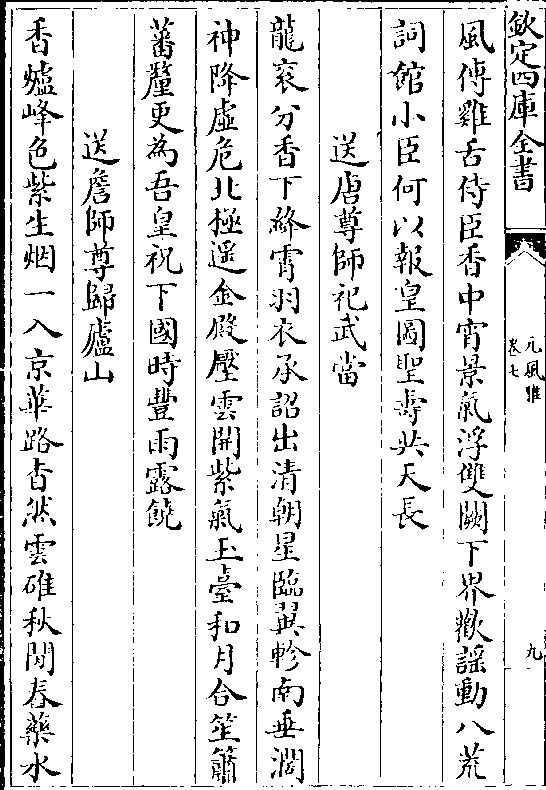 欽定四庫全書
元風雅
卷七
九
風傳雞舌侍臣香中宵景氣浮雙闕下界歡謡動八荒
詞館小臣何以報皇圖聖壽共天長
送唐尊師祀武當
龍衮分香下絳霄羽衣承詔出清朝星臨翼軫南垂濶
神降虚危北極遥金殿壓雲開紫氣玉臺和月合笙簫
蕃釐更為吾皇祝下國時豐雨露饒
送詹師尊歸廬山
香爐峰色紫生烟一入京華路杳然雲碓秋閒舂藥水